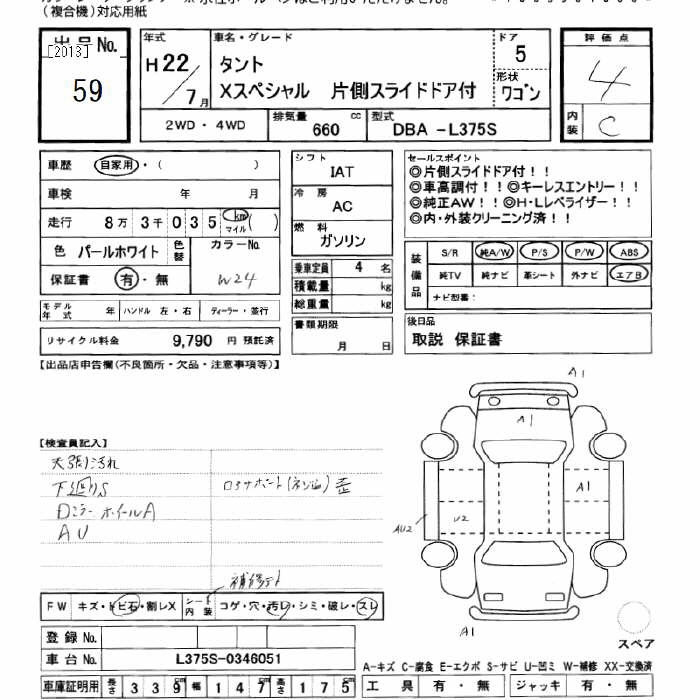 (複合機)対応用紙
出品No. [2013] 59
年式 H22/7月
車名・グレード
タント
Xスペシャル 片側スライドドア付
ドア 5
形状 ワゴン
評価点 4
内装 C
2WD・4WD 排気量 660 cc 型式 DBA -L375S
車歴 自家用・( )
車検 年 月
走行 8万3千035 km マイル ( )
色 パールホワイト 色替 カラーNo. W24
保証書 有・無
シフト IAT
冷房 AC
燃料 ガソリン
乗車定員 4 名
積載量 kg
総重量 kg
書類期限 月 日
セールスポイント
◎片側スライドドア付!!
◎車高調付!!◎キーレスエントリー!!
◎純正AW!!◎H・LLベライザー!!
◎内・外装クリーニング済!!
装備品 S/R 純A/W P/S P/W ABS
純TV 純ナビ 革シート 外ナビ エアB
ナビ型番:
モデル年式 年 ハンドル 左・右 ディーラー・並行
リサイクル料金 9,790 円 預託済
後日品
取説 保証書
【出品店申告欄(不良箇所・欠品・注意事項等)】
【検査員記入】
天張汚れ
下廻りS
Dミラー ホイールA
AU
A1
A1
A1
U2
AU2
A1
FW キズ・トビ石・割レX シート内装 コゲ・穴・汚レ・シミ・破レ・スレ
登録No.
車台No. L375S-0346051
スペア
A-キズ C-腐食 E-エクボ S-サビ U-凹ミ W-補修 XX-交換済
車庫証明用 長さ 339 幅 147 高さ 175
工具 有・無 ジャッキ 有・無